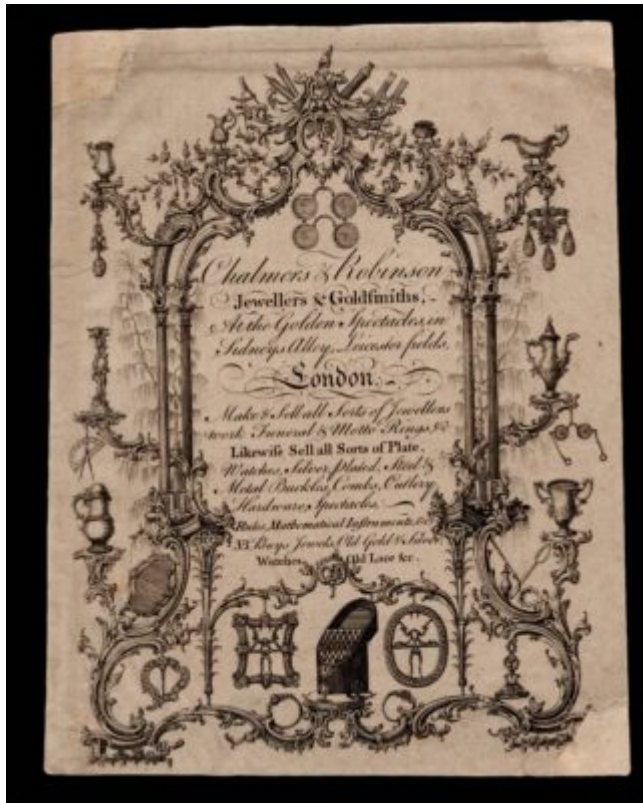 Chalmers & Robinson
Jewellers & Goldſmiths,
At the Golden Spectacles, in
Sidneys Alley, Leicester fields,
London.
Make & Sell all Sorts of Jewellers
work Funeral & Motto Rings, &c
Likewiſe Sell all Sorts of Plate,
Watches, Silver, plated, Steel &
Metal Buckles, Combs, Cutlery
Hardware, Spectacles,
Rules, Mathematical Instruments, &c.
NB Buys Jewels, Old Gold & Silver
Watches, Old Lace &c.